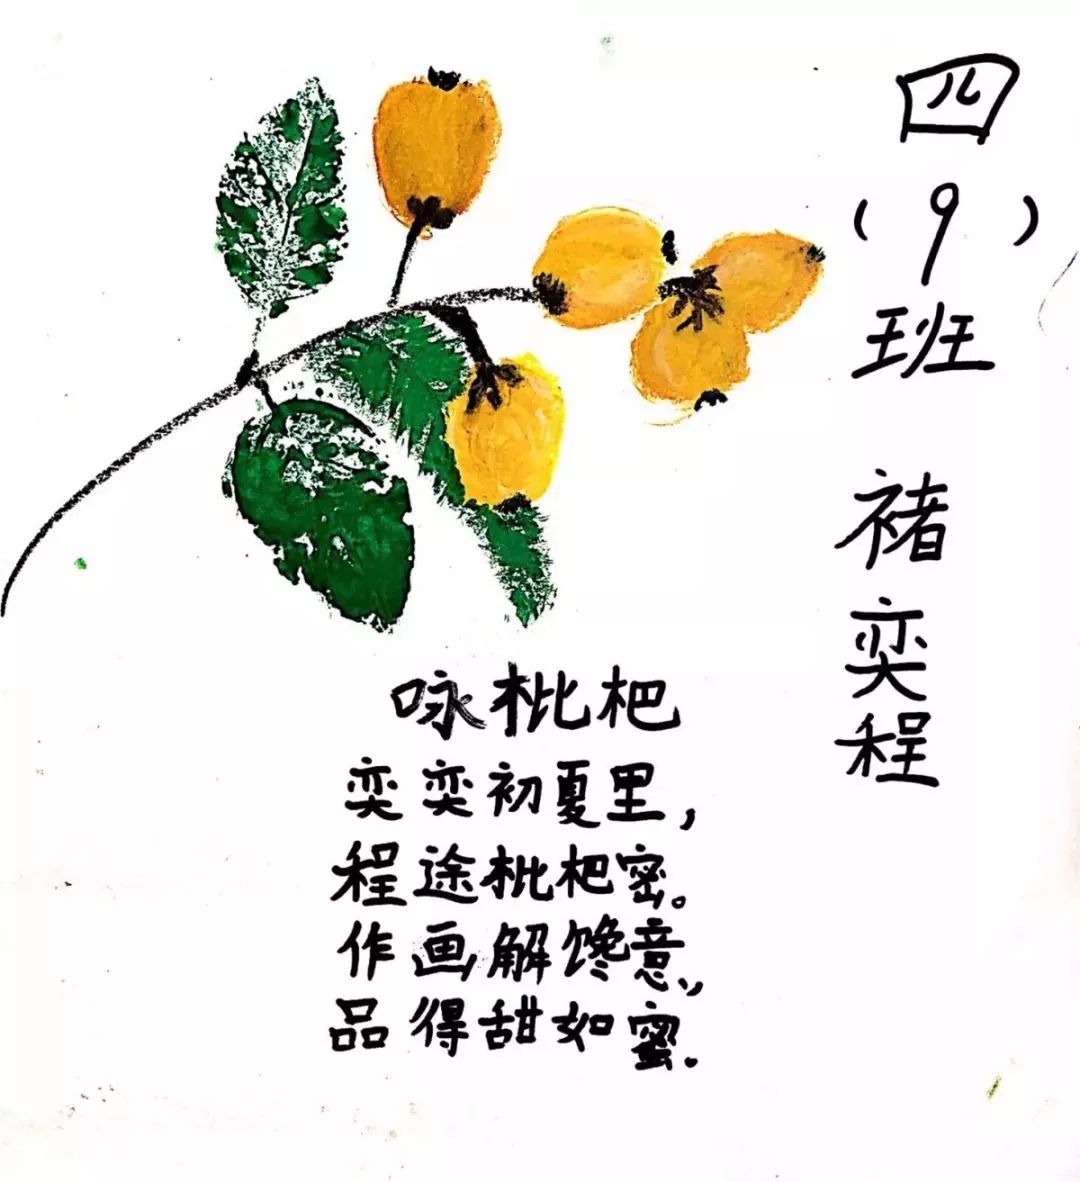 四(9)班 褚奕程
咏枇杷
奕奕初夏里,
程途枇杷密。
作画解馋意,
品得甜如蜜.。